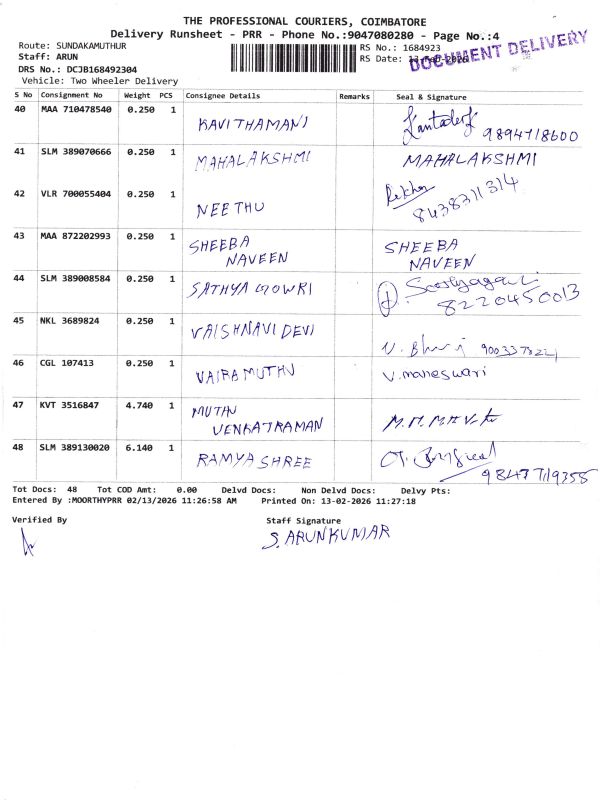 THE PROFESSIONAL COURIERS, COIMBATORE
Delivery Runsheet - PRR - Phone No.:9047080280 - Page No.:4
Route: SUNDAKAMUTHUR
RS No.: 1684923
Staff: ARUN
RS Date: 13-Feb-2026
DOCUMENT DELIVERY
DRS No.: DCJB168492304
Vehicle: Two Wheeler Delivery
S No Consignment No Weight PCS Consignee Details Remarks Seal & Signature
40 MAA 710478540 0.250 1 KAVITHAMANI 9894718600
41 SLM 389070666 0.250 1 MAHALAKSHMI MAHALAKSHMI
42 VLR 700055404 0.250 1 NEETHU Rekha
8438311314
43 MAA 872202993 0.250 1 SHEEBA SHEEBA
NAVEEN NAVEEN
44 SLM 389008584 0.250 1 SATHYA GOWRI
8220450013
45 NKL 3689824 0.250 1 VAISHNAVI DEVI
46 CGL 107413 0.250 1 VAIRAMUTHU V. maheswari
47 KVT 3516847 4.740 1 MUTHU
VENKATRAMAN
48 SLM 389130020 6.140 1 RAMYA SHREE
Tot Docs: 48 Tot COD Amt: 0.00 Delvd Docs: Non Delvd Docs: Delvy Pts:
Entered By :MOORTHYPRR 02/13/2026 11:26:58 AM Printed On: 13-02-2026 11:27:18
Verified By Staff Signature
S. ARUNKUMAR